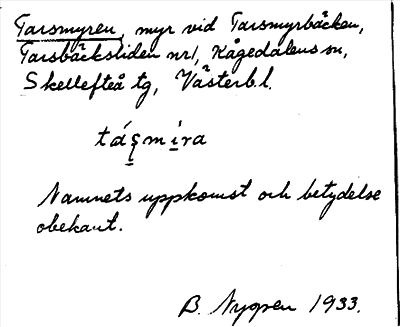 Tarsmyren, myr vid Tarsmyrbäcken,
Tarsbäcksliden nr1, Kågedalens sn,
Skellefteå tg, Västerb.l.
tás̱mi̱ra
Namnets uppkomst och betydelse
obekant.
B. Nygren 1933.